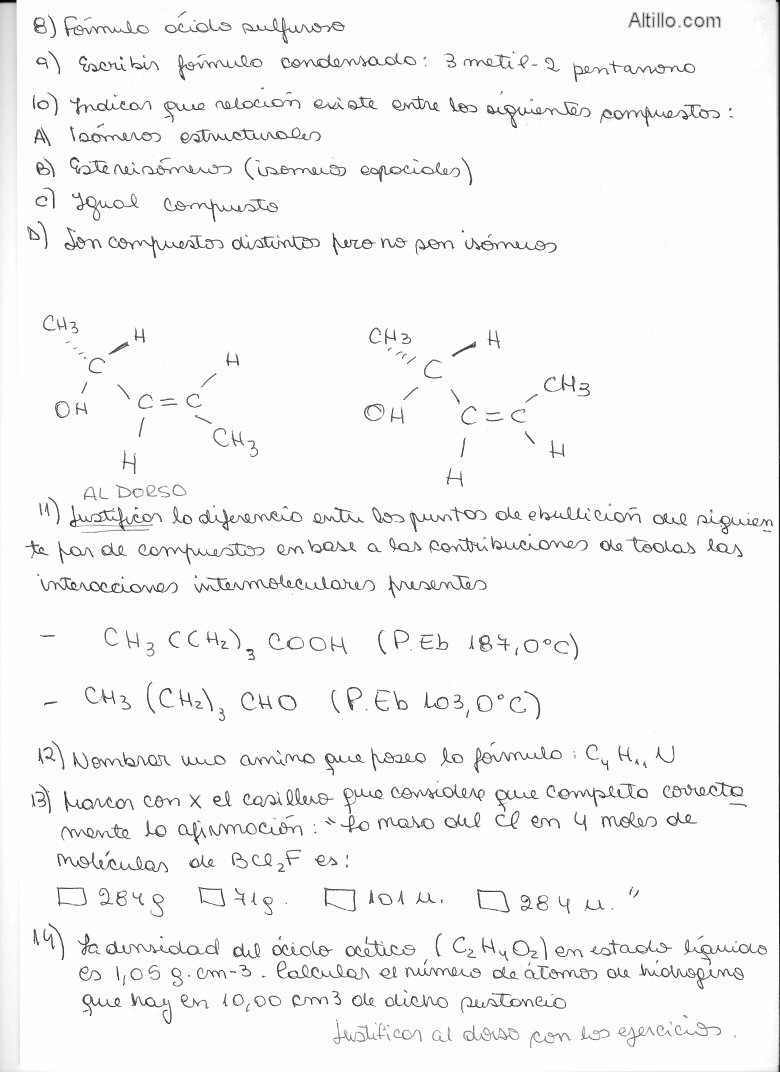 Altillo.com
8) Fórmula ácido sulfuroso
9) Escribir fórmula condensada: 3 metil-2 pentanona
10) Indicar que relación existe entre los siguientes compuestos:
A) Isómeros estructurales
B) Estereisómeros (isomeros espaciales)
C) Igual compuesto
D) Son compuestos distintos pero no son isómeros
CH3 H CH3 H
C H C CH3
OH C = C OH C = C
CH3 H
H H
AL DORSO
11) Justificar la diferencia entre los puntos de ebullición del siguien
te par de compuestos en base a las contribuciones de todas las
interacciones intermoleculares presentes
- CH3 (CH2)3 COOH (P.Eb 187,0°C)
- CH3 (CH2)3 CHO (P.Eb 103,0°C)
12) Nombrar una amina que posea la fórmula: C4 H11 N
13) Marcar con x el casillero que considere que completa correcta
mente la afirmación: "La masa del Cl en 4 moles de
moléculas de BCl2F es:
284g 71g. 101 u. 284 u. "
14) La densidad del ácido acético (C2H4O2) en estado líquido
es 1,05 g.cm-3. Calcular el número de átomos de hidrógeno
que hay en 10,00 cm3 de dicha sustancia
Justificar al dorso con los ejercicios.